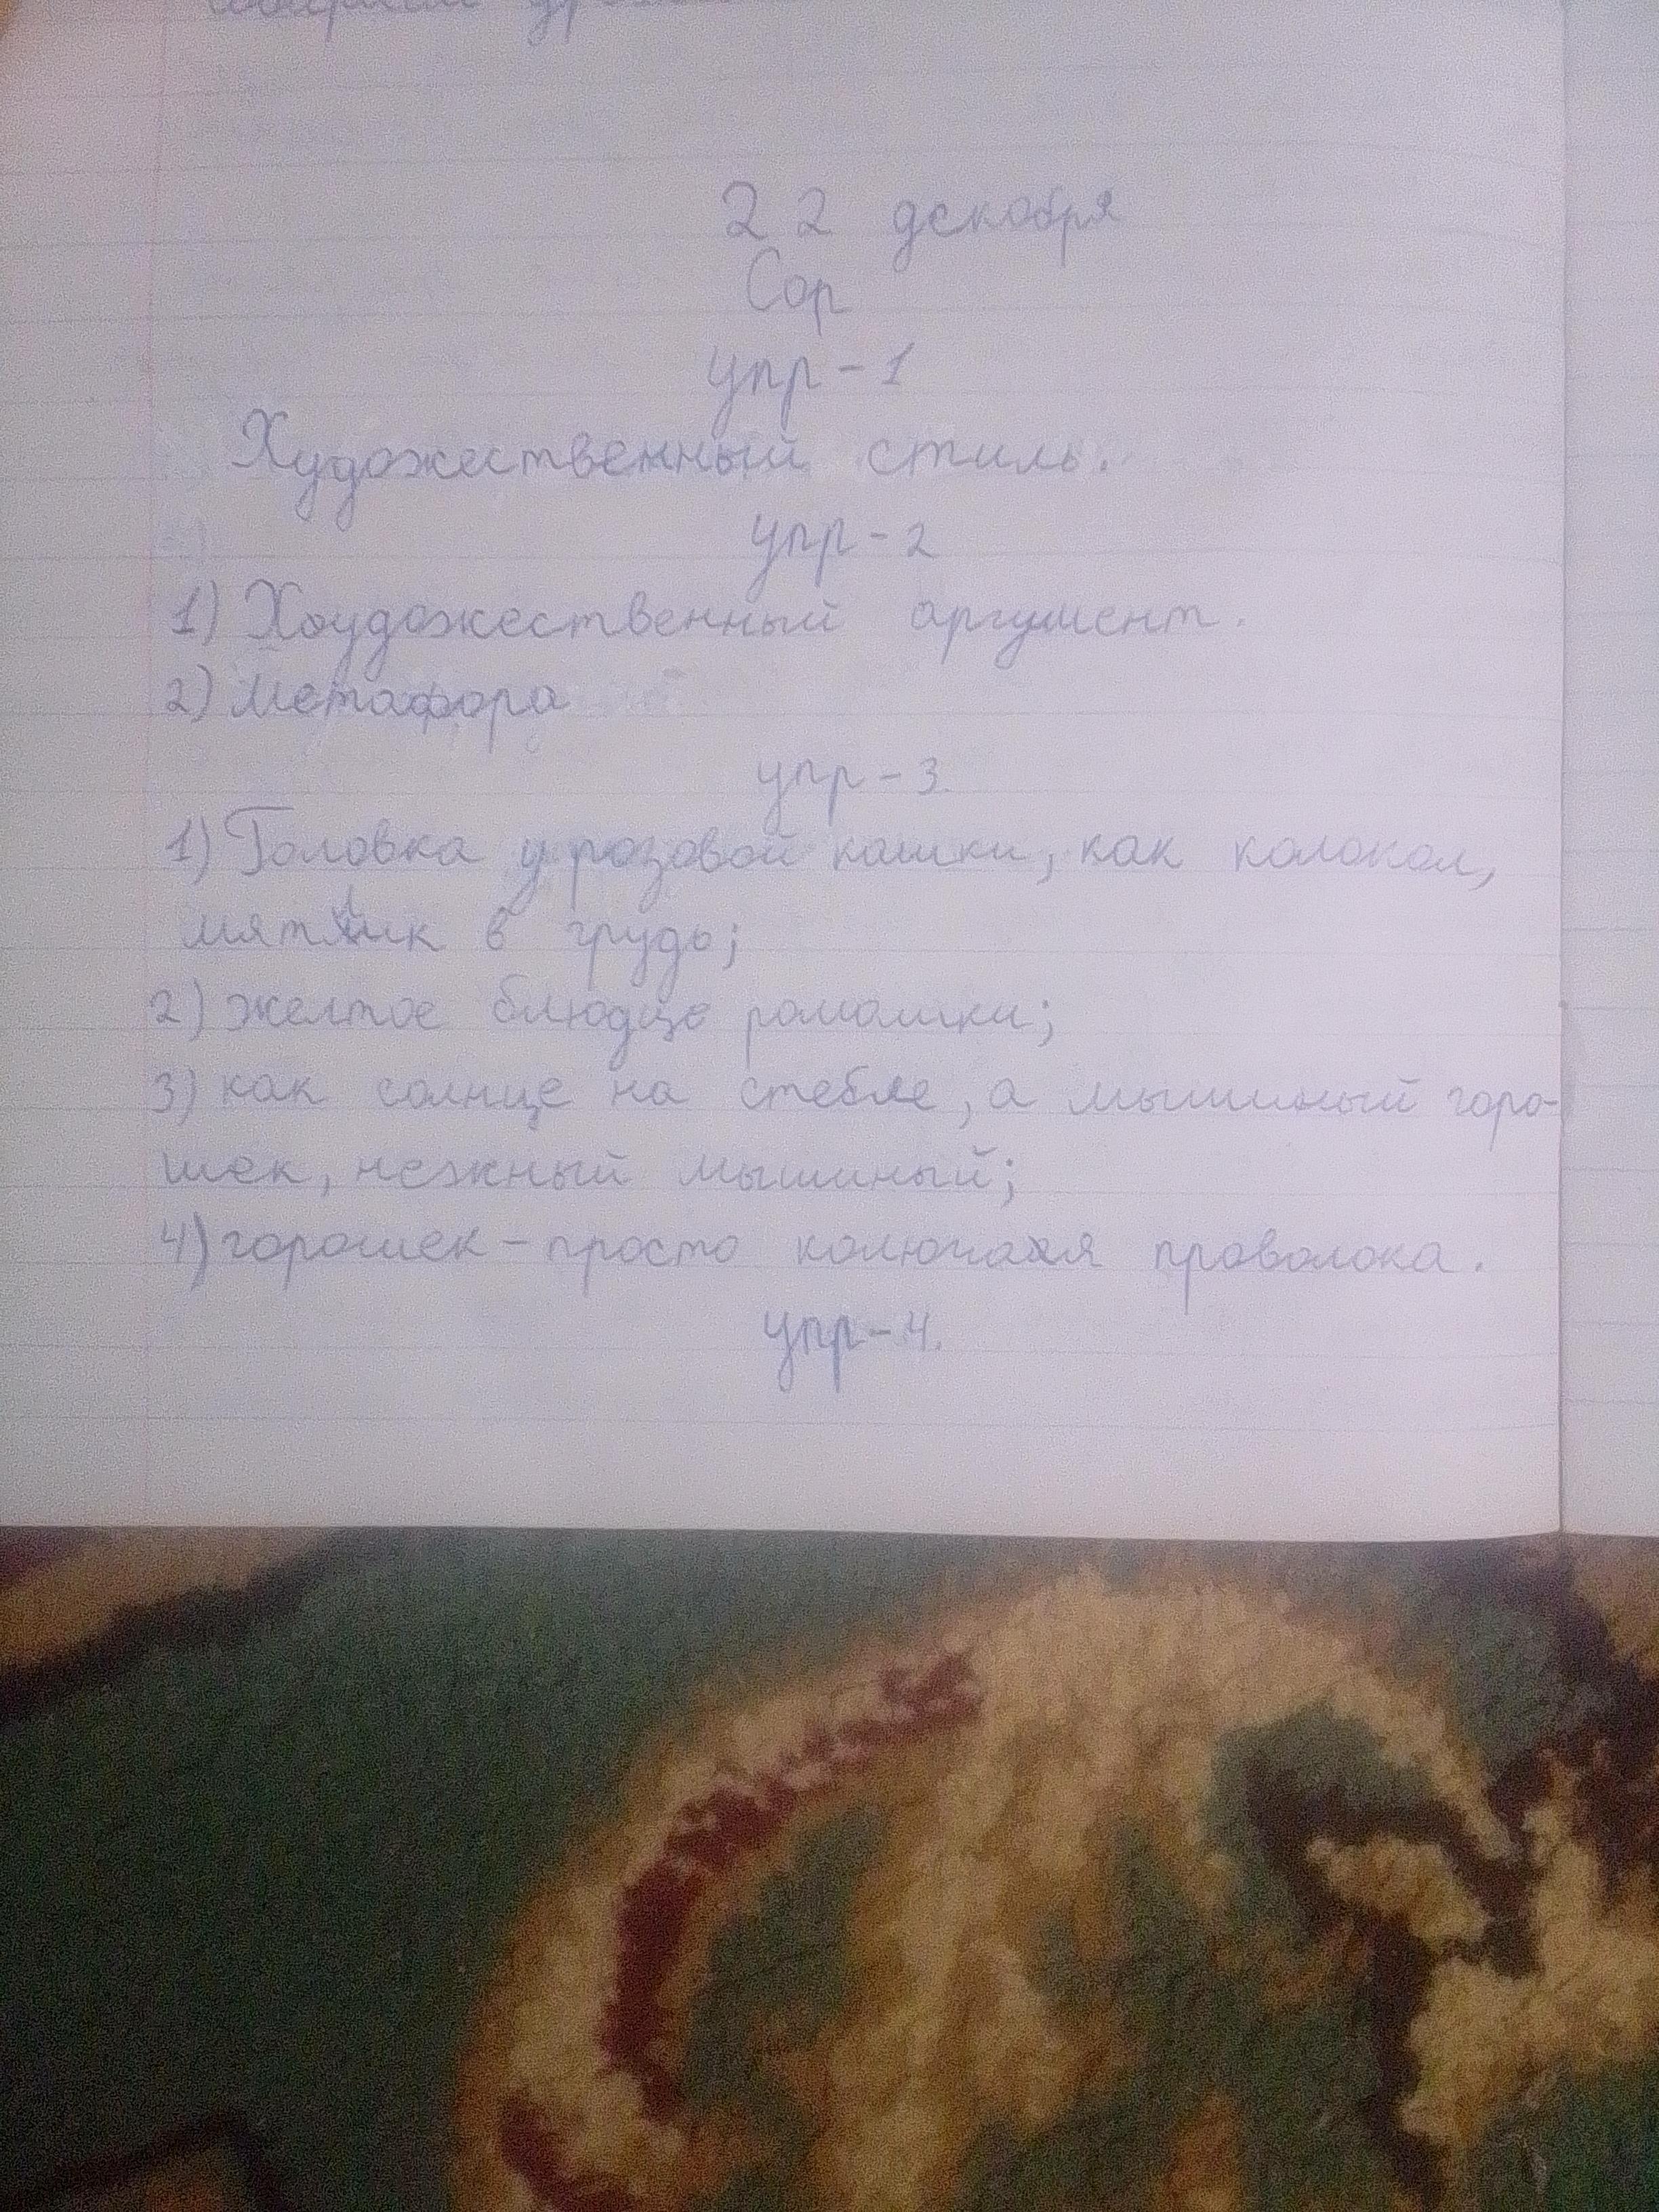 22 декабря
Сор
упр-1
Художественный стиль.
упр-2
1) Хоудожественный аргумент.
2) Метафора
упр-3.
1) Головка у розовой кашки, как колокол,
в грудь;
2) желтое блюдце ромашки;
3) как солнце на стебле, а мышиный горо-
шек, нежный мышиный;
4) горошек - просто колючая проволока.
упр-4.